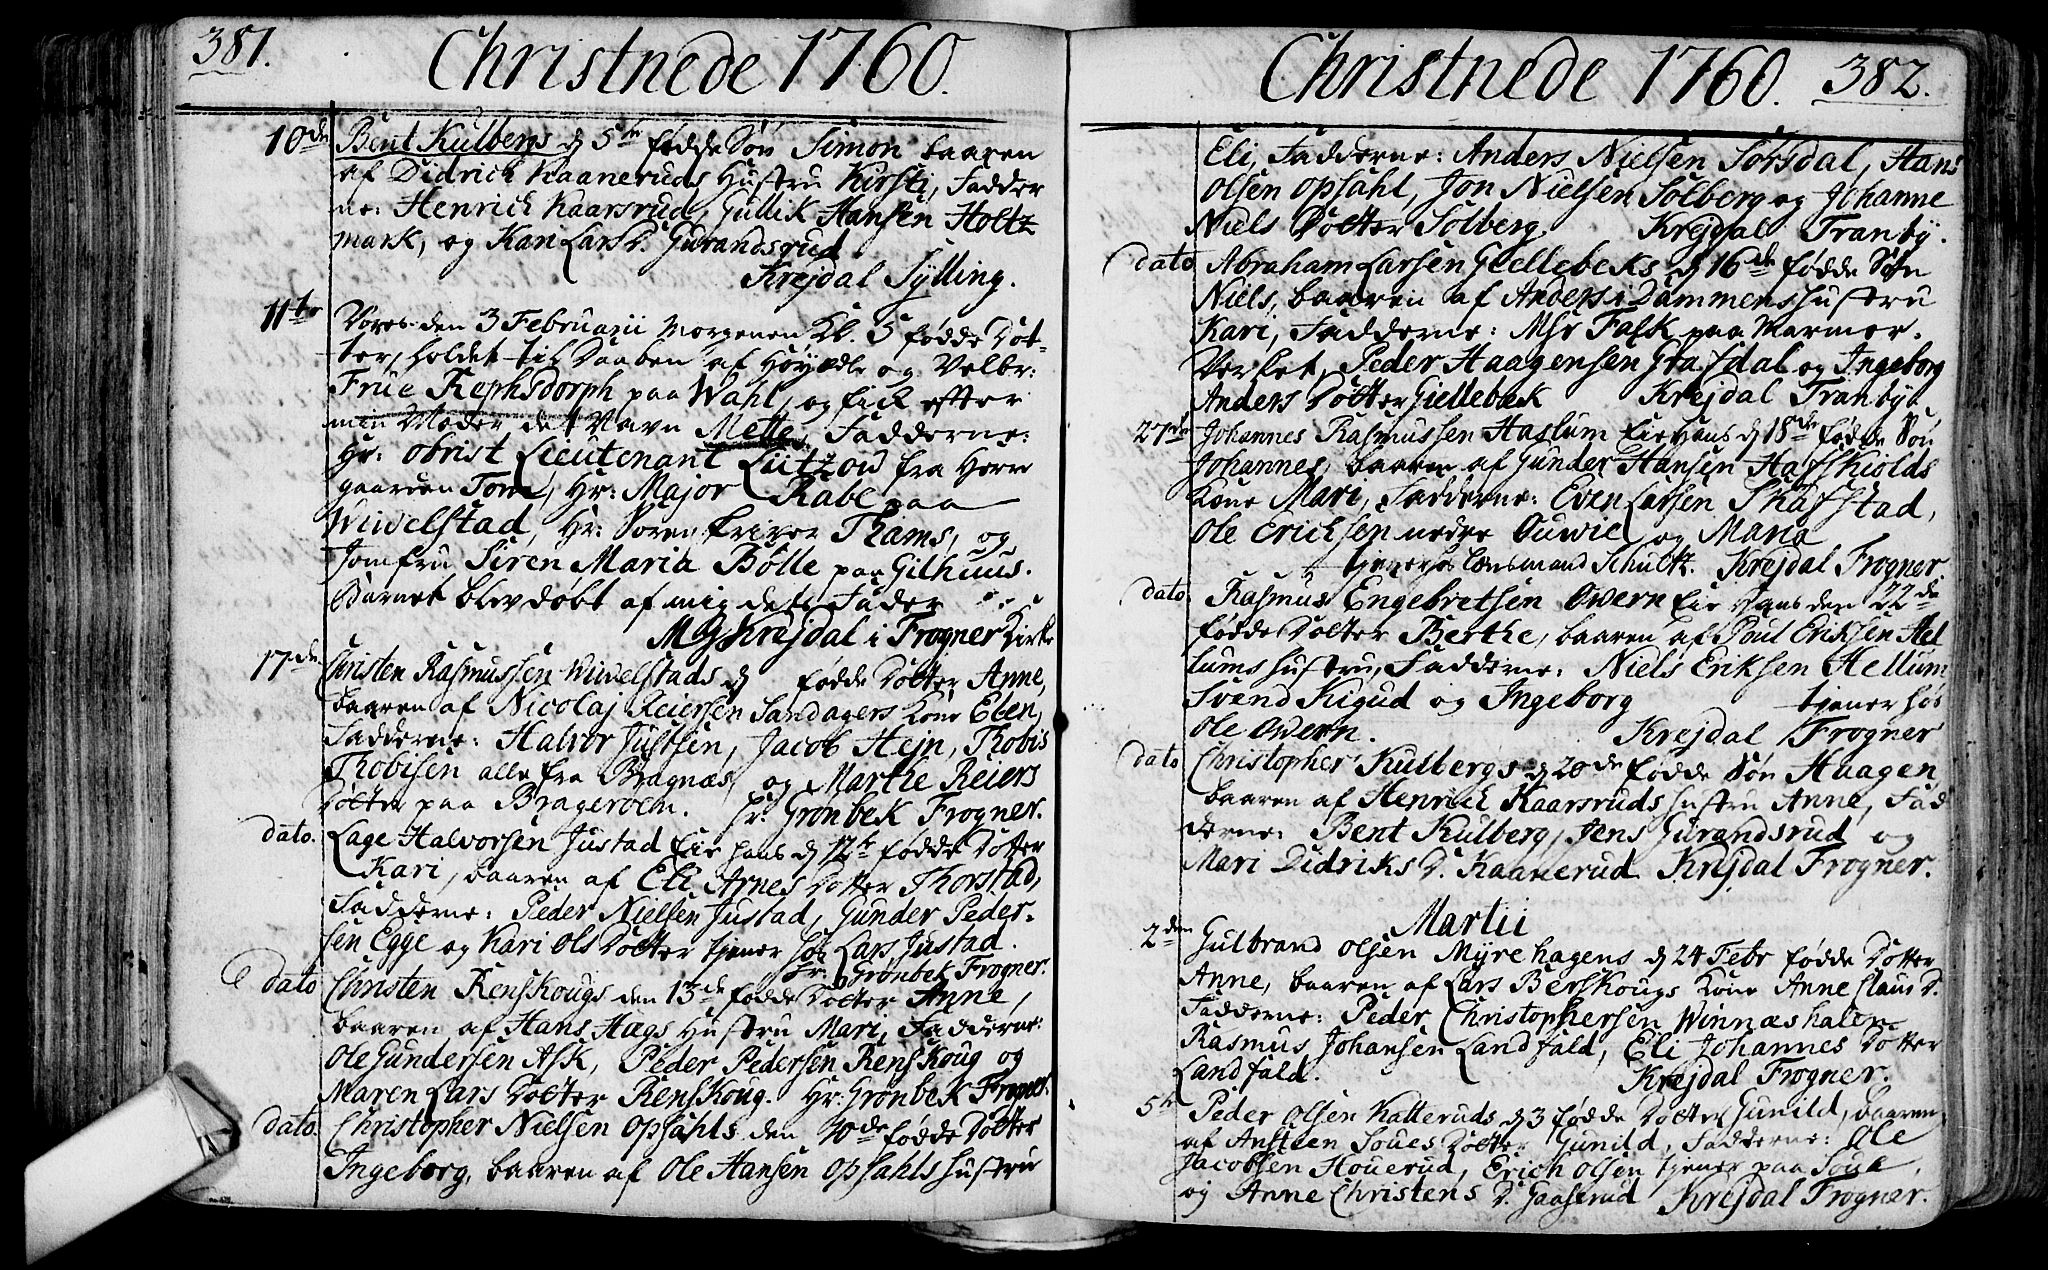 381.
Christnede 1760.
10de Bent Kulbergs d 5te fødde Søn Simon baaren
af Didrich Kaaneruds Hustru Kirsti, Fadder
ne: Henrich Kaarsrud, Gullik Hansen Holtz
mark, og Kari Lars D. Gurandsrud
Krejdal Sylling.
11te Vores den 3 Februarii Morgenen Kl. 5 fødde Døt-
ter, holdet til Daaben af Høyædle og Velbr:
Frue Rephsdorph paa Wahl, og fick efter
min Moder det Navn Mette, Fadderne:
Hr: Obrist Lieutenant Lützow fra Herre
gaarden Tom, Hr: Major Rabe paa
Wiwelstad, Hr: Sorenskriver Thams, og
Jomfru Siren Maria Bölle paa Gilhuus.
Barnet blev døbt af mig dets Fader
MG Krejdal i Frogner Kirke
17de Christen Rasmussen Wiwelstads d fødde Dotter Anne,
baaren af Nicolaj Reiersen Sandagers Kone Eben,
Fadderne: Halvor Justsen, Jacob Hejn, Thobis
Thobisen alle fra Bragnæs, og Marthe Reiers
Dotter paa Brageroen. Hr. Grønbek Frogner.
dato. Lage Halvorsen Justad Eie hans d 12te fødde Dotter
Kari, baaren af Eli Arnes Dotter Thorstad,
Fadderne: Peder Nielsen Justad, Gunder Peder-
sen Egge og Kari Ols Dotter tjener hos Lars Justad.
Hr. Grønbek Frogner.
dato Christen Renskougs den 13de fødde Dotter Anne,
baaren af Hans Hægs Hustru Mari, Fadderne:
Ole Gundersen Ask, Peder Pedersen Renskoug og
Maren Lars Dotter Renskoug. Hr. Grønbek Frogner.
dato. Christopher Nielsen Opsahls den 10de fødde Dotter
Ingeborg, baaren af Ole Hansen Opsahls Hustru
Christnede 1760. 382.
Eli, Fadderne: Anders Nielsen Sørsdal, Hans
Olsen Opsahl, Jon Nielsen Solberg og Johanne
Niels Dotter Solberg. Krejdal Tranby.
dato Abraham Larsen Giellebeks d 16de fødde Søn
Niels, baaren af Anders i Dammens Hustru
Kari, Fadderne: Msr Falk paa Marmor-
Verket, Peder Haagensen Grafdal og Ingeborg
Anders Dotter Giellebæk Krejdal Tranby.
27de Johannes Rasmussen Haslum Eie hans d 18de fødde Søn
Johannes, baaren af Gunder Hansen Hafskiolds
Kone Mari, Fadderne: Even Larsen Skafstad,
Ole Erichsen nedre Ouwie og Maria
tjener hos Lensmand Schultz. Krejdal Frogner
dato Rasmus Engebretsen Owern Eie hans den 22de
fødde Dotter Berthe, baaren af Poul Eriksen Hel
lums Hustru, Fadderne: Niels Eriksen Hellum
Svend Sigud og Ingeborg tjener hos
Ole Owern. Krejdal Frogner
dato Christopher Kulbergs d 20de fødde Søn Haagen
baaren af Henrich Kaarsruds Hustru Anne, Fad
derne: Bent Kulberg, Jens Gurandsrud og
Mari Didriks D. Kaanerud Krejdal Frogner.
Martii
2den Gulbrand Olsen Myrehagens d 24 Febr fødde Dotter
Anne, baaren af Lars Berskougs Kone Anne Claus D.
Fadderne: Peder Christophersen Winnæshalen
Rasmus Johansen Landfald, Eli Johannes Dotter
Landfald. Krejdal Frogner.
5te Peder Olsen Katteruds d 3 fødde Dotter Gunild, baaren
af Ansteen Soues Dotter Gunild, Fadderne: Ole
Jacobsen Houerud, Erich Olsen tjener paa Soue,
og Anne Christens D. Gaaserud Krejdal Frogner.